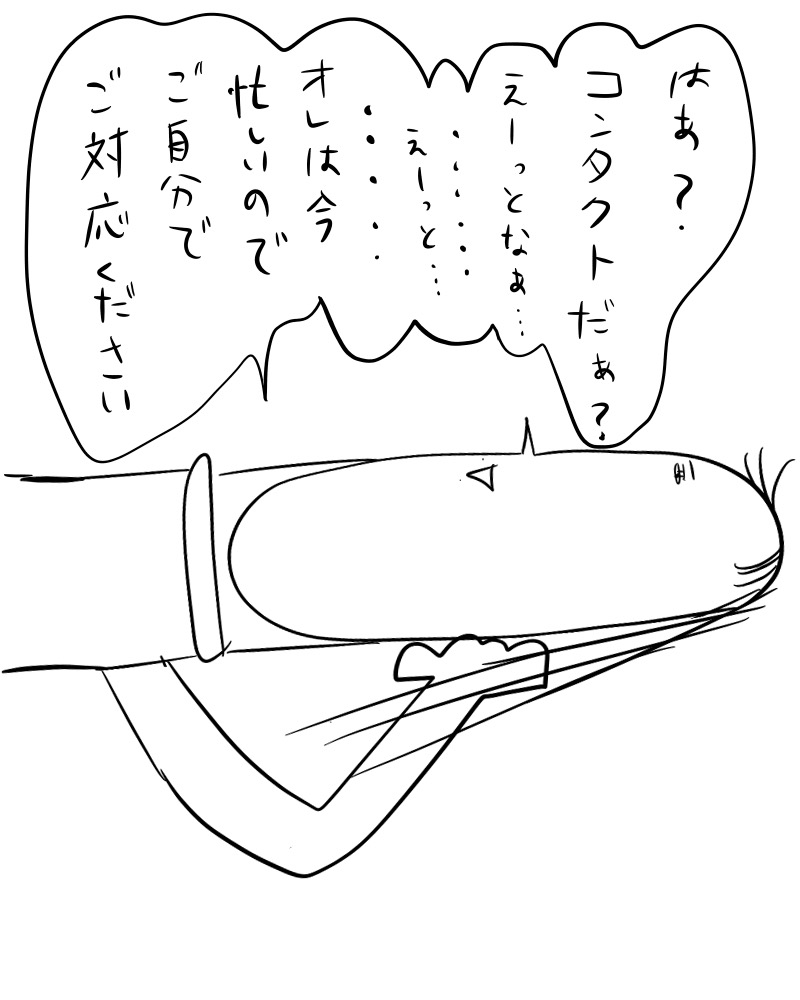 はあ?
コンタクトだぁ?
えーっとなぁ…
……‥
えーっと…
・・・・
オレは今
忙しいので
ご自分で
ご対応ください